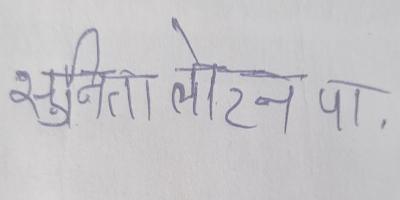 सुनिता लोटन पा.